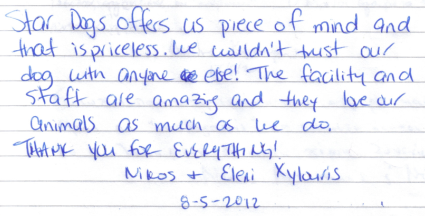 Star Dogs offers us piece of mind and
that is priceless. We wouldn't trust our
dog with anyone else! The facility and
staff are amazing and they love our
animals as much as we do.
THANK YOU FOR EVERYTHING!
Nikos + Eleni Xylouris
8-5-2012